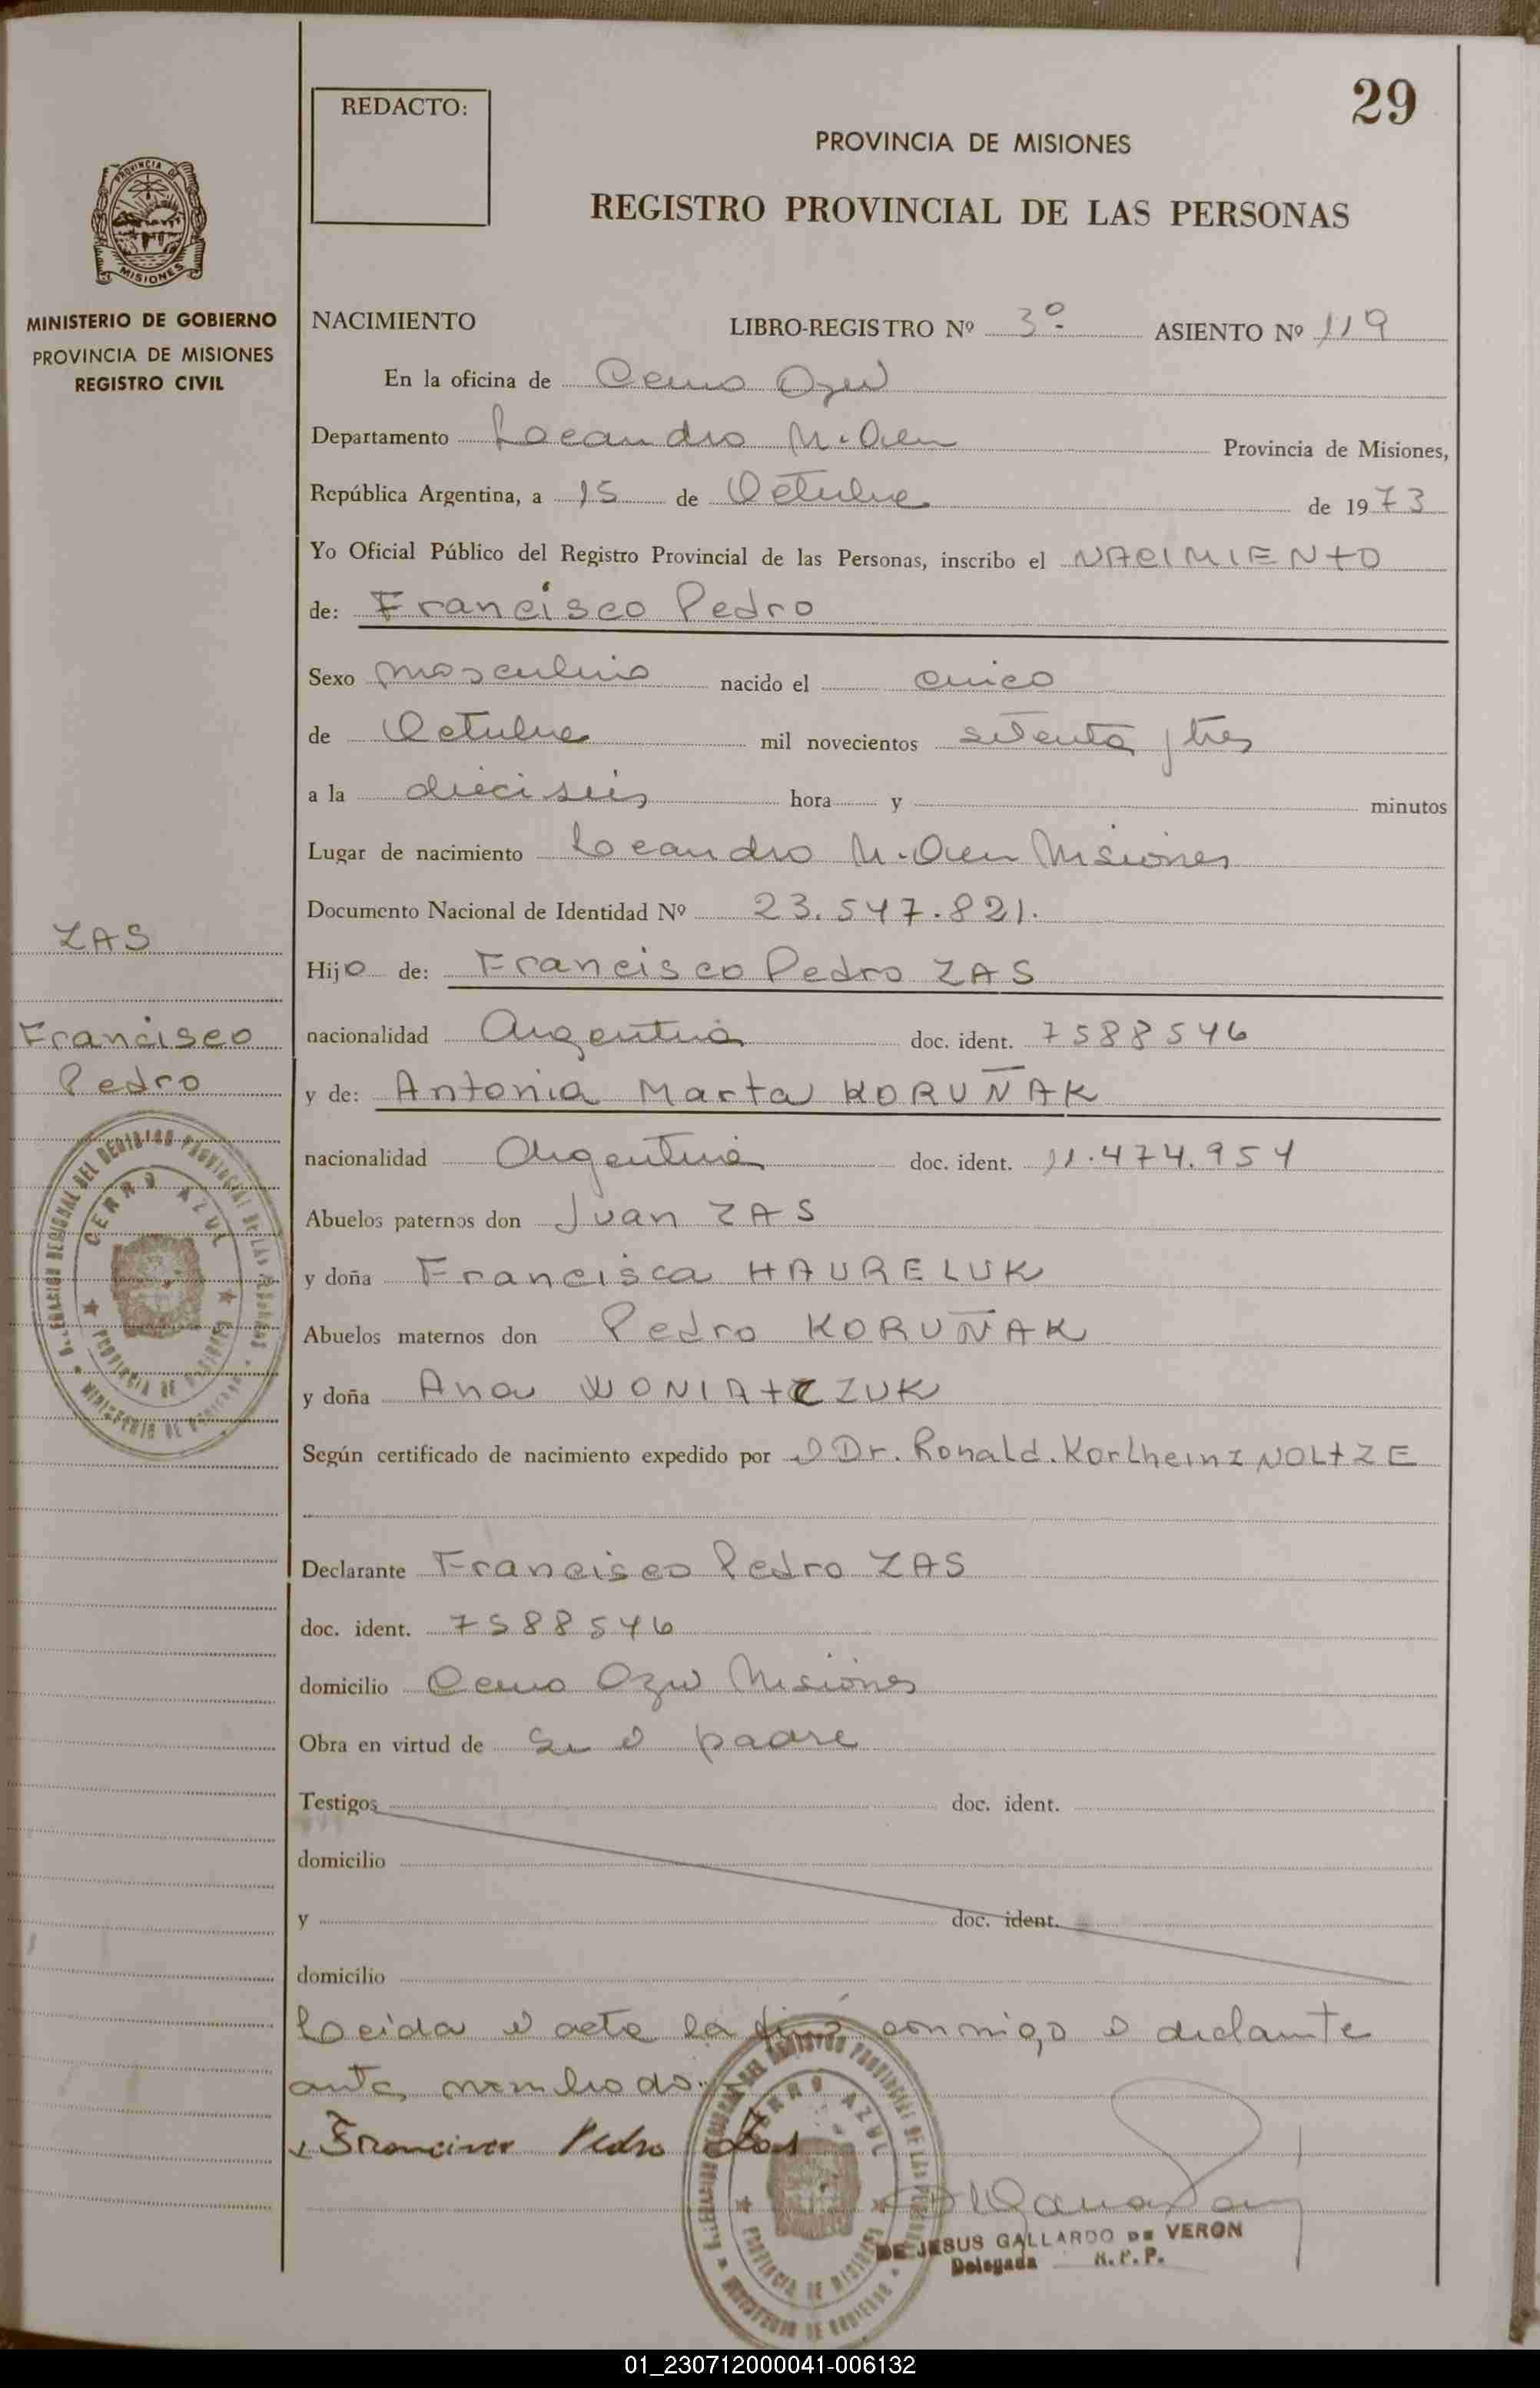 29
REDACTO:
PROVINCIA DE MISIONES
REGISTRO PROVINCIAL DE LAS PERSONAS
PROVINCIA DE
MISIONES
MINISTERIO DE GOBIERNO
PROVINCIA DE MISIONES
REGISTRO CIVIL
NACIMIENTO LIBRO-REGISTRO Nº 3º ASIENTO Nº 119
En la oficina de Cerro Azul
Departamento Leandro N. Alem Provincia de Misiones,
República Argentina, a 15 de Octubre de 1973
Yo Oficial Público del Registro Provincial de las Personas, inscribo el NACIMIENTO
de: Francisco Pedro
Sexo masculino nacido el cinco
de Octubre mil novecientos setenta y tres
a la dieciseis hora y minutos
Lugar de nacimiento Leandro N. Alem Misiones
Documento Nacional de Identidad Nº 23.547.821.
ZAS
Hijo de: Francisco Pedro ZAS
Francisco
Pedro
nacionalidad Argentina doc. ident. 7588546
y de: Antonia Marta KORUÑAK
nacionalidad Argentina doc. ident. 11.474.954
Abuelos paternos don Juan ZAS
y doña Francisca HAURELUK
Abuelos maternos don Pedro KORUÑAK
y doña Ana WONIATCZUK
CERRO AZUL
PROVINCIA DE MISIONES
Según certificado de nacimiento expedido por el Dr. Ronald. Karlheinz NOLTZE
Declarante Francisco Pedro ZAS
doc. ident. 7588546
domicilio Cerro Azul Misiones
Obra en virtud de ser el padre
Testigos doc. ident.
domicilio
y doc. ident.
domicilio
Leida el acta la firmó conmigo el declarante
antes nombrado.
Francisco Pedro Zas
CERRO AZUL
PROVINCIA DE MISIONES
DE JESUS GALLARDO DE VERON
Delegada R.P.P.
01_230712000041-006132